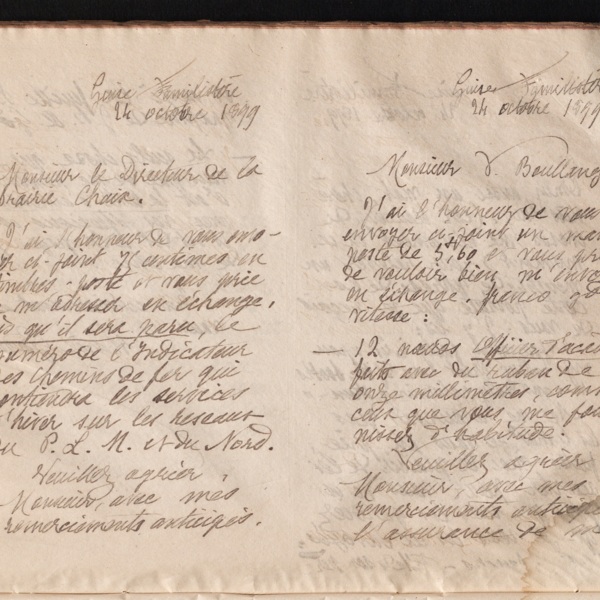 Guise Familistère
24 octobre 1899
Monsieur le Directeur de la
brairie Chaix.
J'ai l'honneur de vous envo-
yer ci-joint 75 centimes en
timbres-poste et vous prie
de m'adresser en échange,
dès qu'il sera paru, le
numéro de l'Indicateur
des chemins de fer qui
contiendra les services
d'hiver sur les réseaux
du P. L. M. et du Nord.
Veuillez agréer,
Monsieur, avec mes
remerciements anticipés.
Guise Familistère
24 octobre 1899
Monsieur Boullenge
J'ai l'honneur de vous
envoyer ci-joint un man
poste de 5f,60 et vous pri
de vouloir bien m'envoy
en échange, franco
vitesse :
— 12 nœuds officier d'acad
faits avec du ruban de
onze millimètres, comm
ceux que vous me four
nissez d'habitude.
Veuillez agréer
Monsieur, avec mes
remerciements anticipé
l'assurance de me